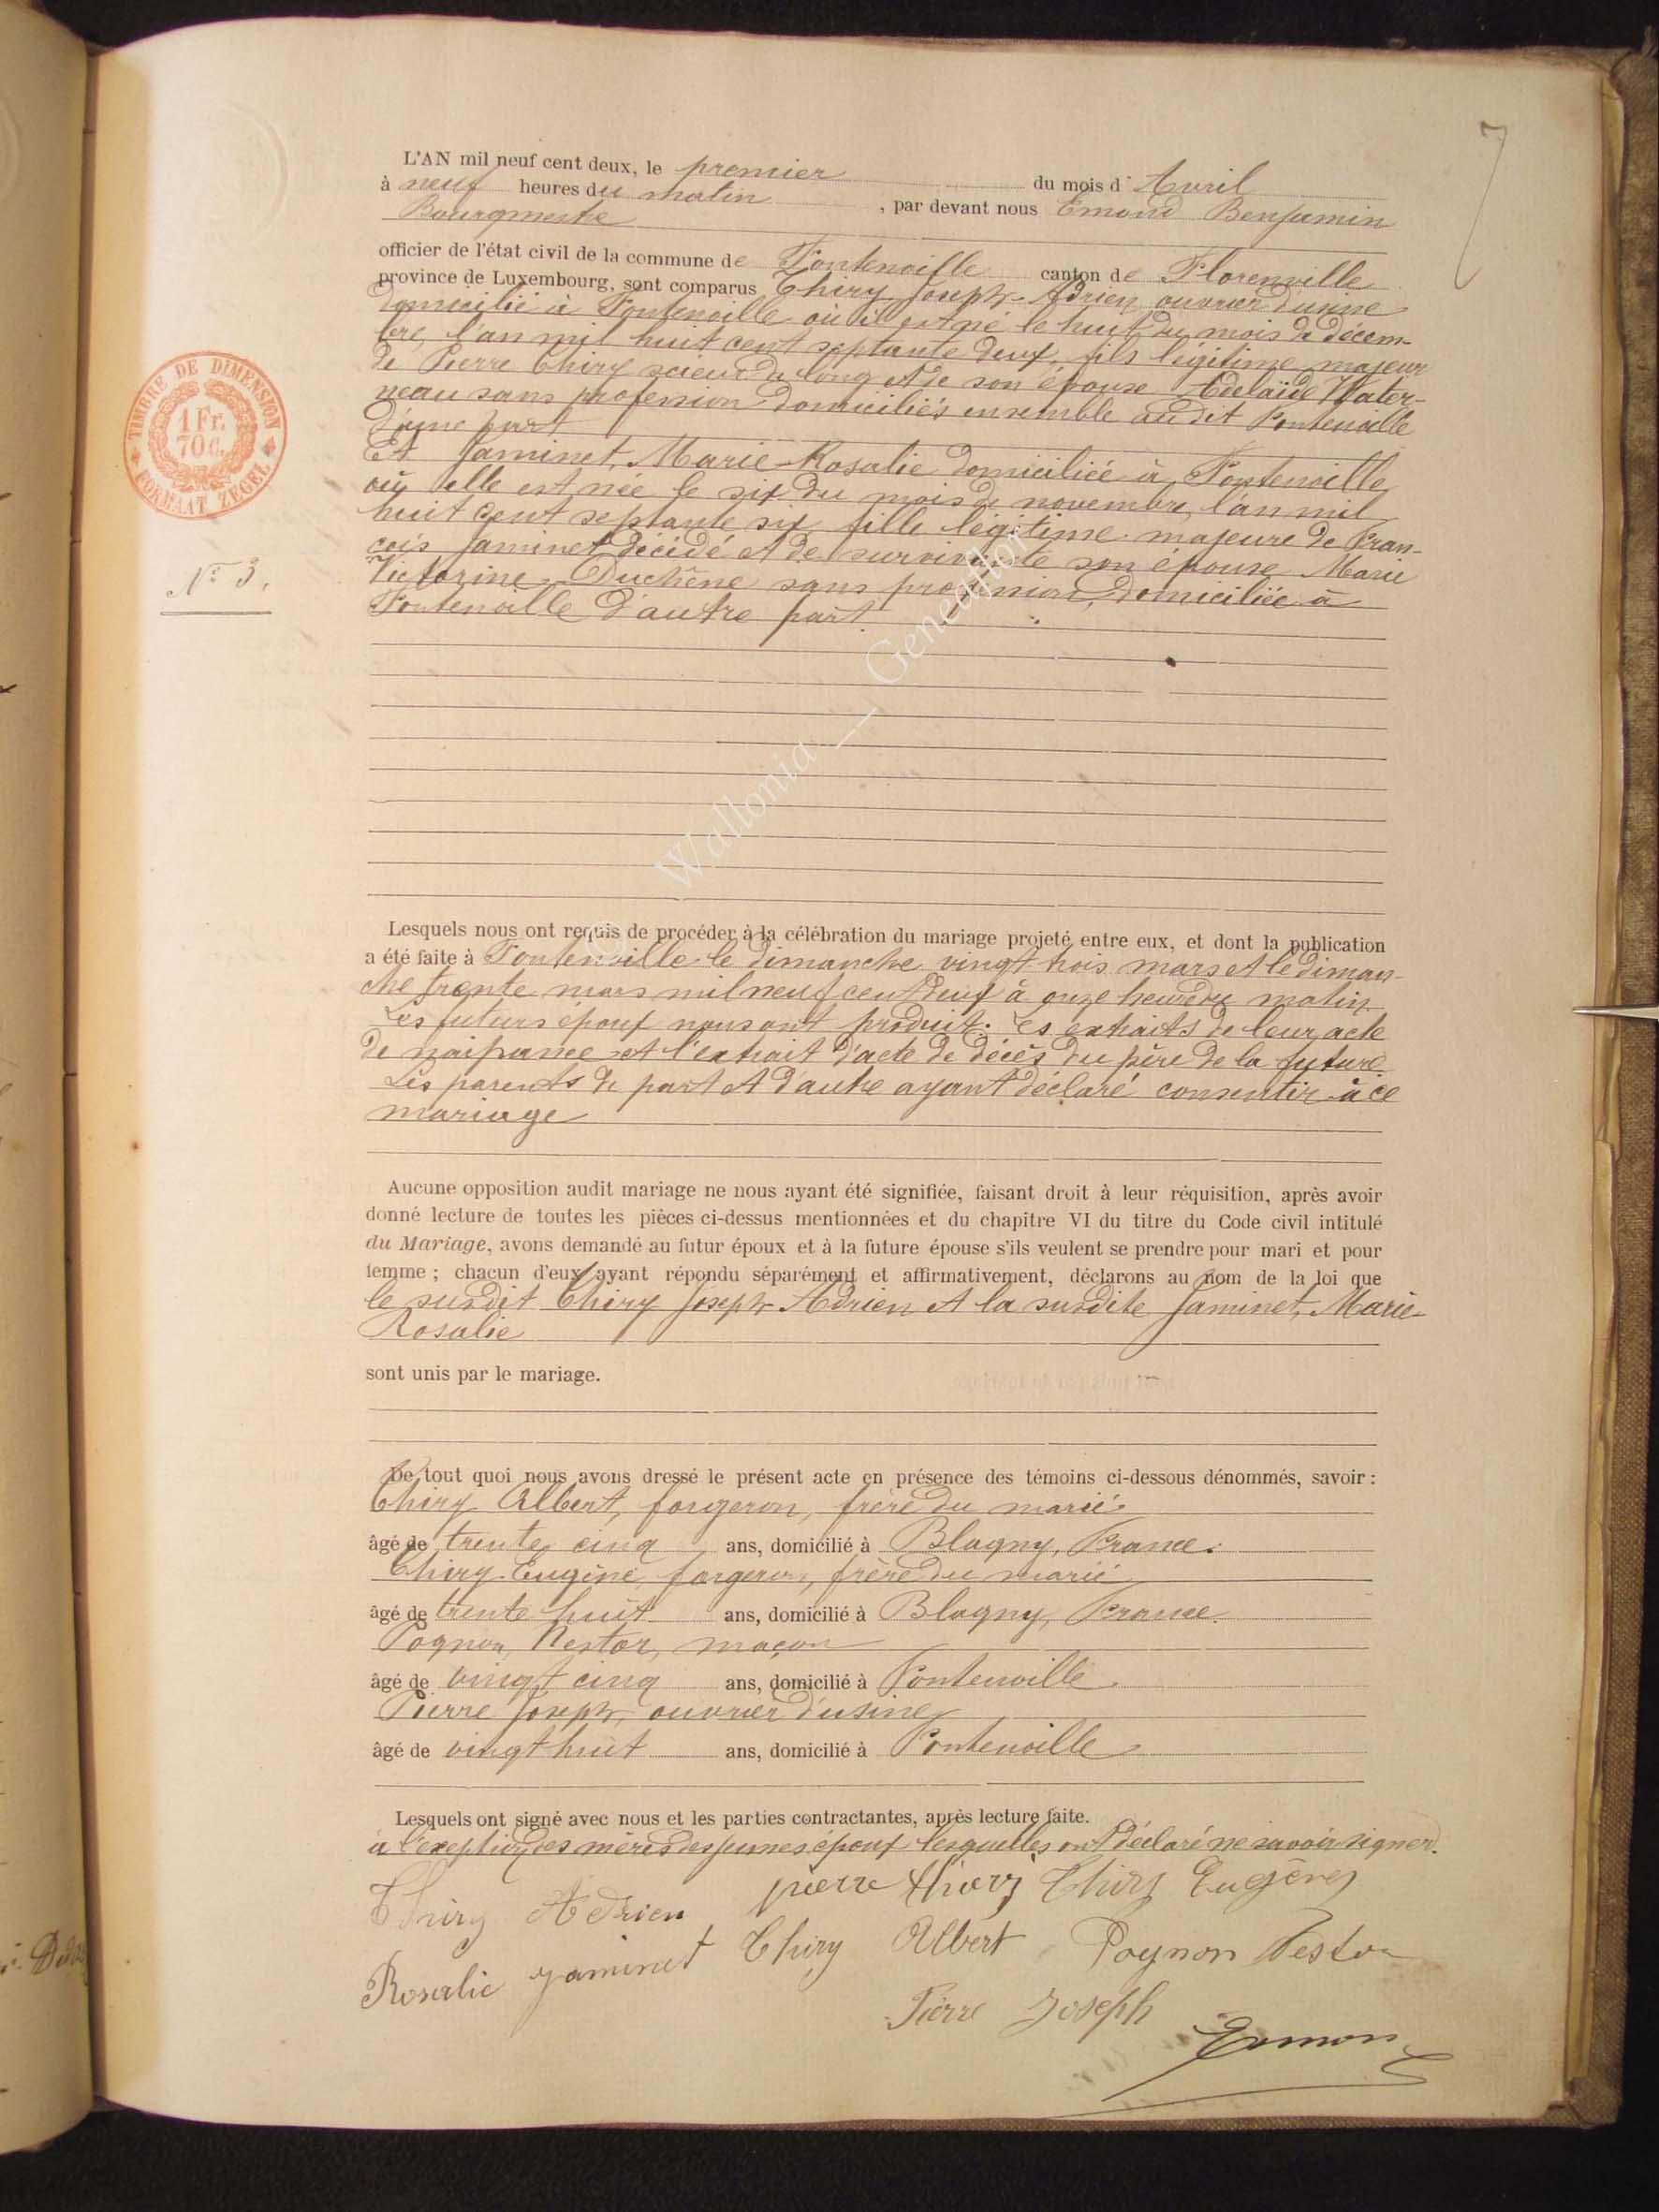 7
L'AN mil neuf cent deux, le premier du mois d'Avril
à neuf heures du matin, par devant nous Emond Benjamin
Bourgmestre
officier de l'état civil de la commune de Fontenoille canton de Florenville
province de Luxembourg, sont comparus Thiry Joseph-Adrien ouvrier d'usine
domicilié à Fontenoille où il est né le huit du mois de décem-
bre, l'an mil huit cent septante deux, fils légitime majeur
de Pierre Thiry scieur de long et de son épouse Adelaïde Water-
neau sans profession domiciliés ensemble au dit Fontenoille
d'une part
Et Jaminet, Marie-Rosalie domiciliée à Fontenoille
où elle est née le six du mois de novembre, l'an mil
huit cent septante six fille légitime majeure de Fran-
çois Jaminet décédé et de survivante son épouse Marie
Victorine Duchêne sans profession, domiciliée à
Fontenoille d'autre part.
TIMBRE DE DIMENSION
1 Fr.
70 c.
FORMAAT ZEGEL
N° 3.
Wallonia — Geneaflor
Lesquels nous ont requis de procéder à la célébration du mariage projeté entre eux, et dont la publication
a été faite à Fontenoille le dimanche vingt trois mars et le diman-
che trente mars mil neuf cent deux à onze heures du matin.
Les futurs époux nous ont produit: les extraits de leur acte
de naissance et l'extrait d'acte de décès du père de la future
Les parents de part et d'autre ayant déclaré consentir à ce
mariage
Aucune opposition audit mariage ne nous ayant été signifiée, faisant droit à leur réquisition, après avoir
donné lecture de toutes les pièces ci-dessus mentionnées et du chapitre VI du titre du Code civil intitulé
du Mariage, avons demandé au futur époux et à la future épouse s'ils veulent se prendre pour mari et pour
femme ; chacun d'eux ayant répondu séparément et affirmativement, déclarons au nom de la loi que
le susdit Thiry Joseph-Adrien et la susdite Jaminet, Marie-
Rosalie
sont unis par le mariage.
De tout quoi nous avons dressé le présent acte en présence des témoins ci-dessous dénommés, savoir :
Thiry Albert, forgeron, frère du marié
âgé de trente cinq ans, domicilié à Blagny, France.
Thiry Eugène, forgeron, frère du marié
âgé de trente huit ans, domicilié à Blagny, France.
Pognon, Nestor, maçon
âgé de vingt cinq ans, domicilié à Fontenoille.
Pierre Joseph, ouvrier d'usine
âgé de vingt huit ans, domicilié à Fontenoille
Lesquels ont signé avec nous et les parties contractantes, après lecture faite.
à l'exception des mères des jeunes époux lesquelles ont déclaré ne savoir signer.
Thiry Adrien pierre thiery Thiry Eugène
Rosalie Jaminet Thiry Albert Pognon Nestor
Pierre Joseph
Emond